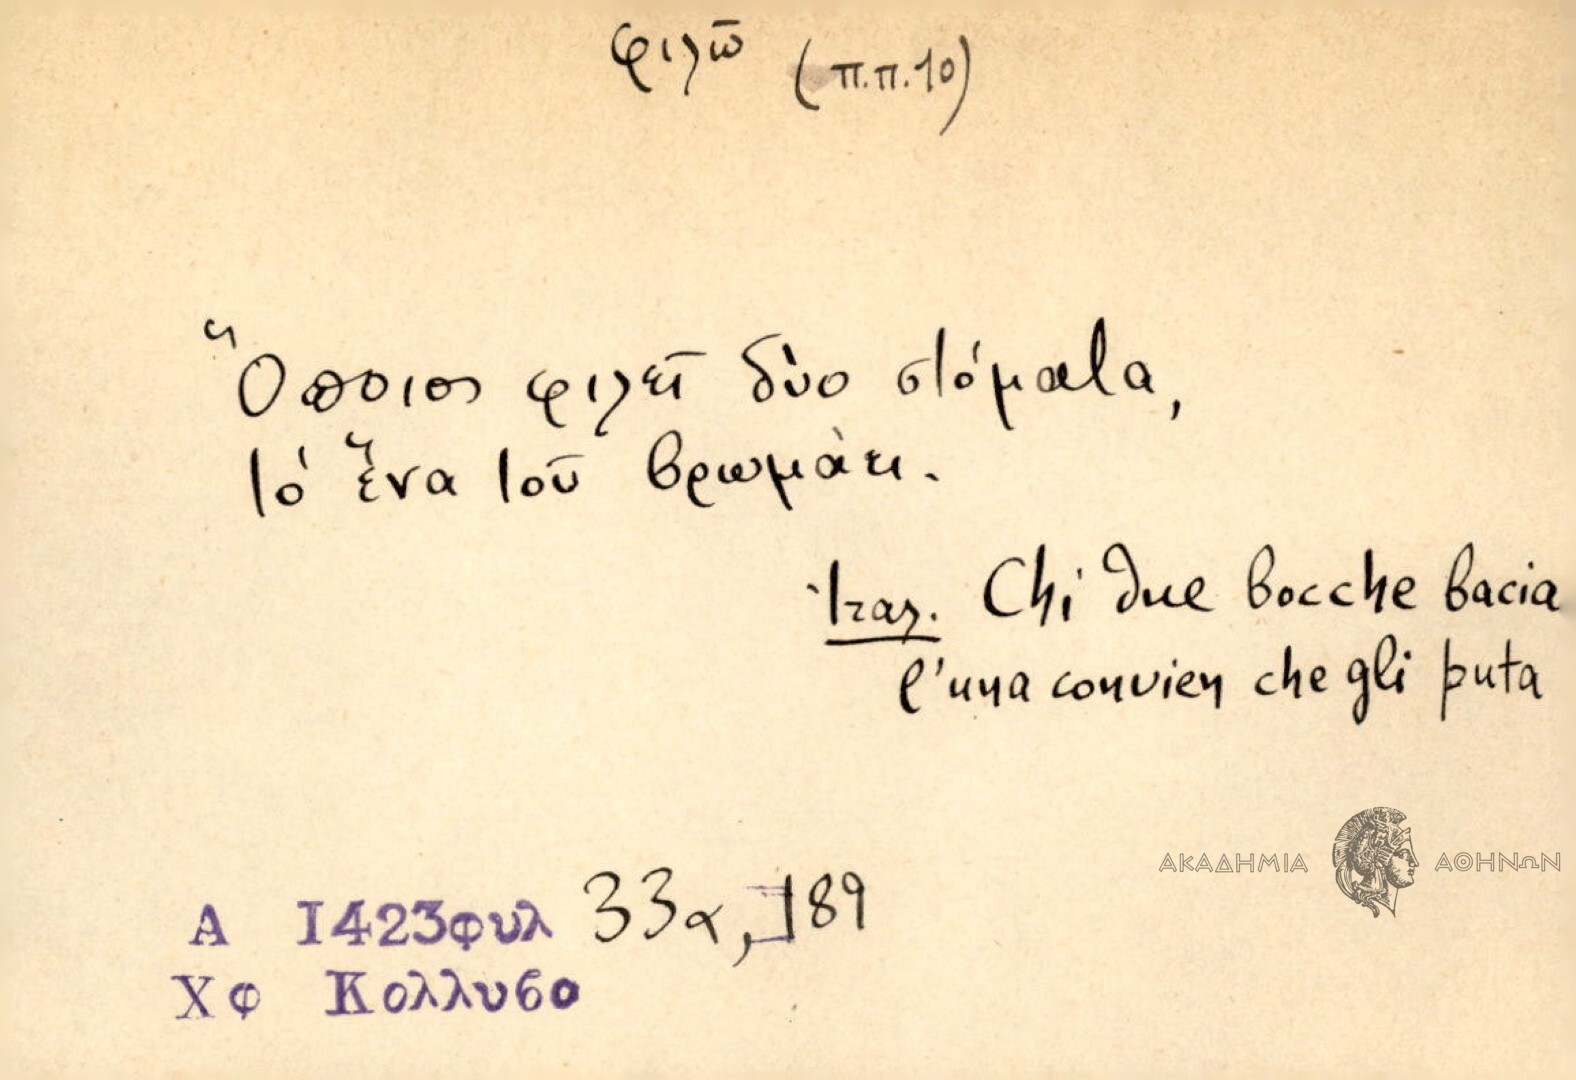 φιλῶ (π.π.10)
Ὅποιος φιλεῖ δύο στόματα,
τό ἕνα τοῦ βρωμάει.
Ἰταλ. Chi due bocche bacia
l'una convien che gli puta
ΑΚΑΔΗΜΙΑ ΑΘΗΝΩΝ
Α 1423φυλ 33α, 189
Χφ Κολλυβο